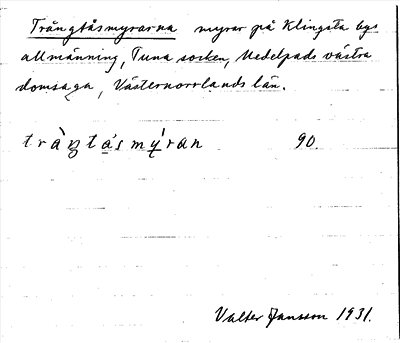 Trångtåsmyrarna myrar på Klingsta bys
allmänning, Tuna socken, Medelpads västra
domsaga, Västernorrlands län.
tràŋtásmýran 90.
Valter Jansson 1931.